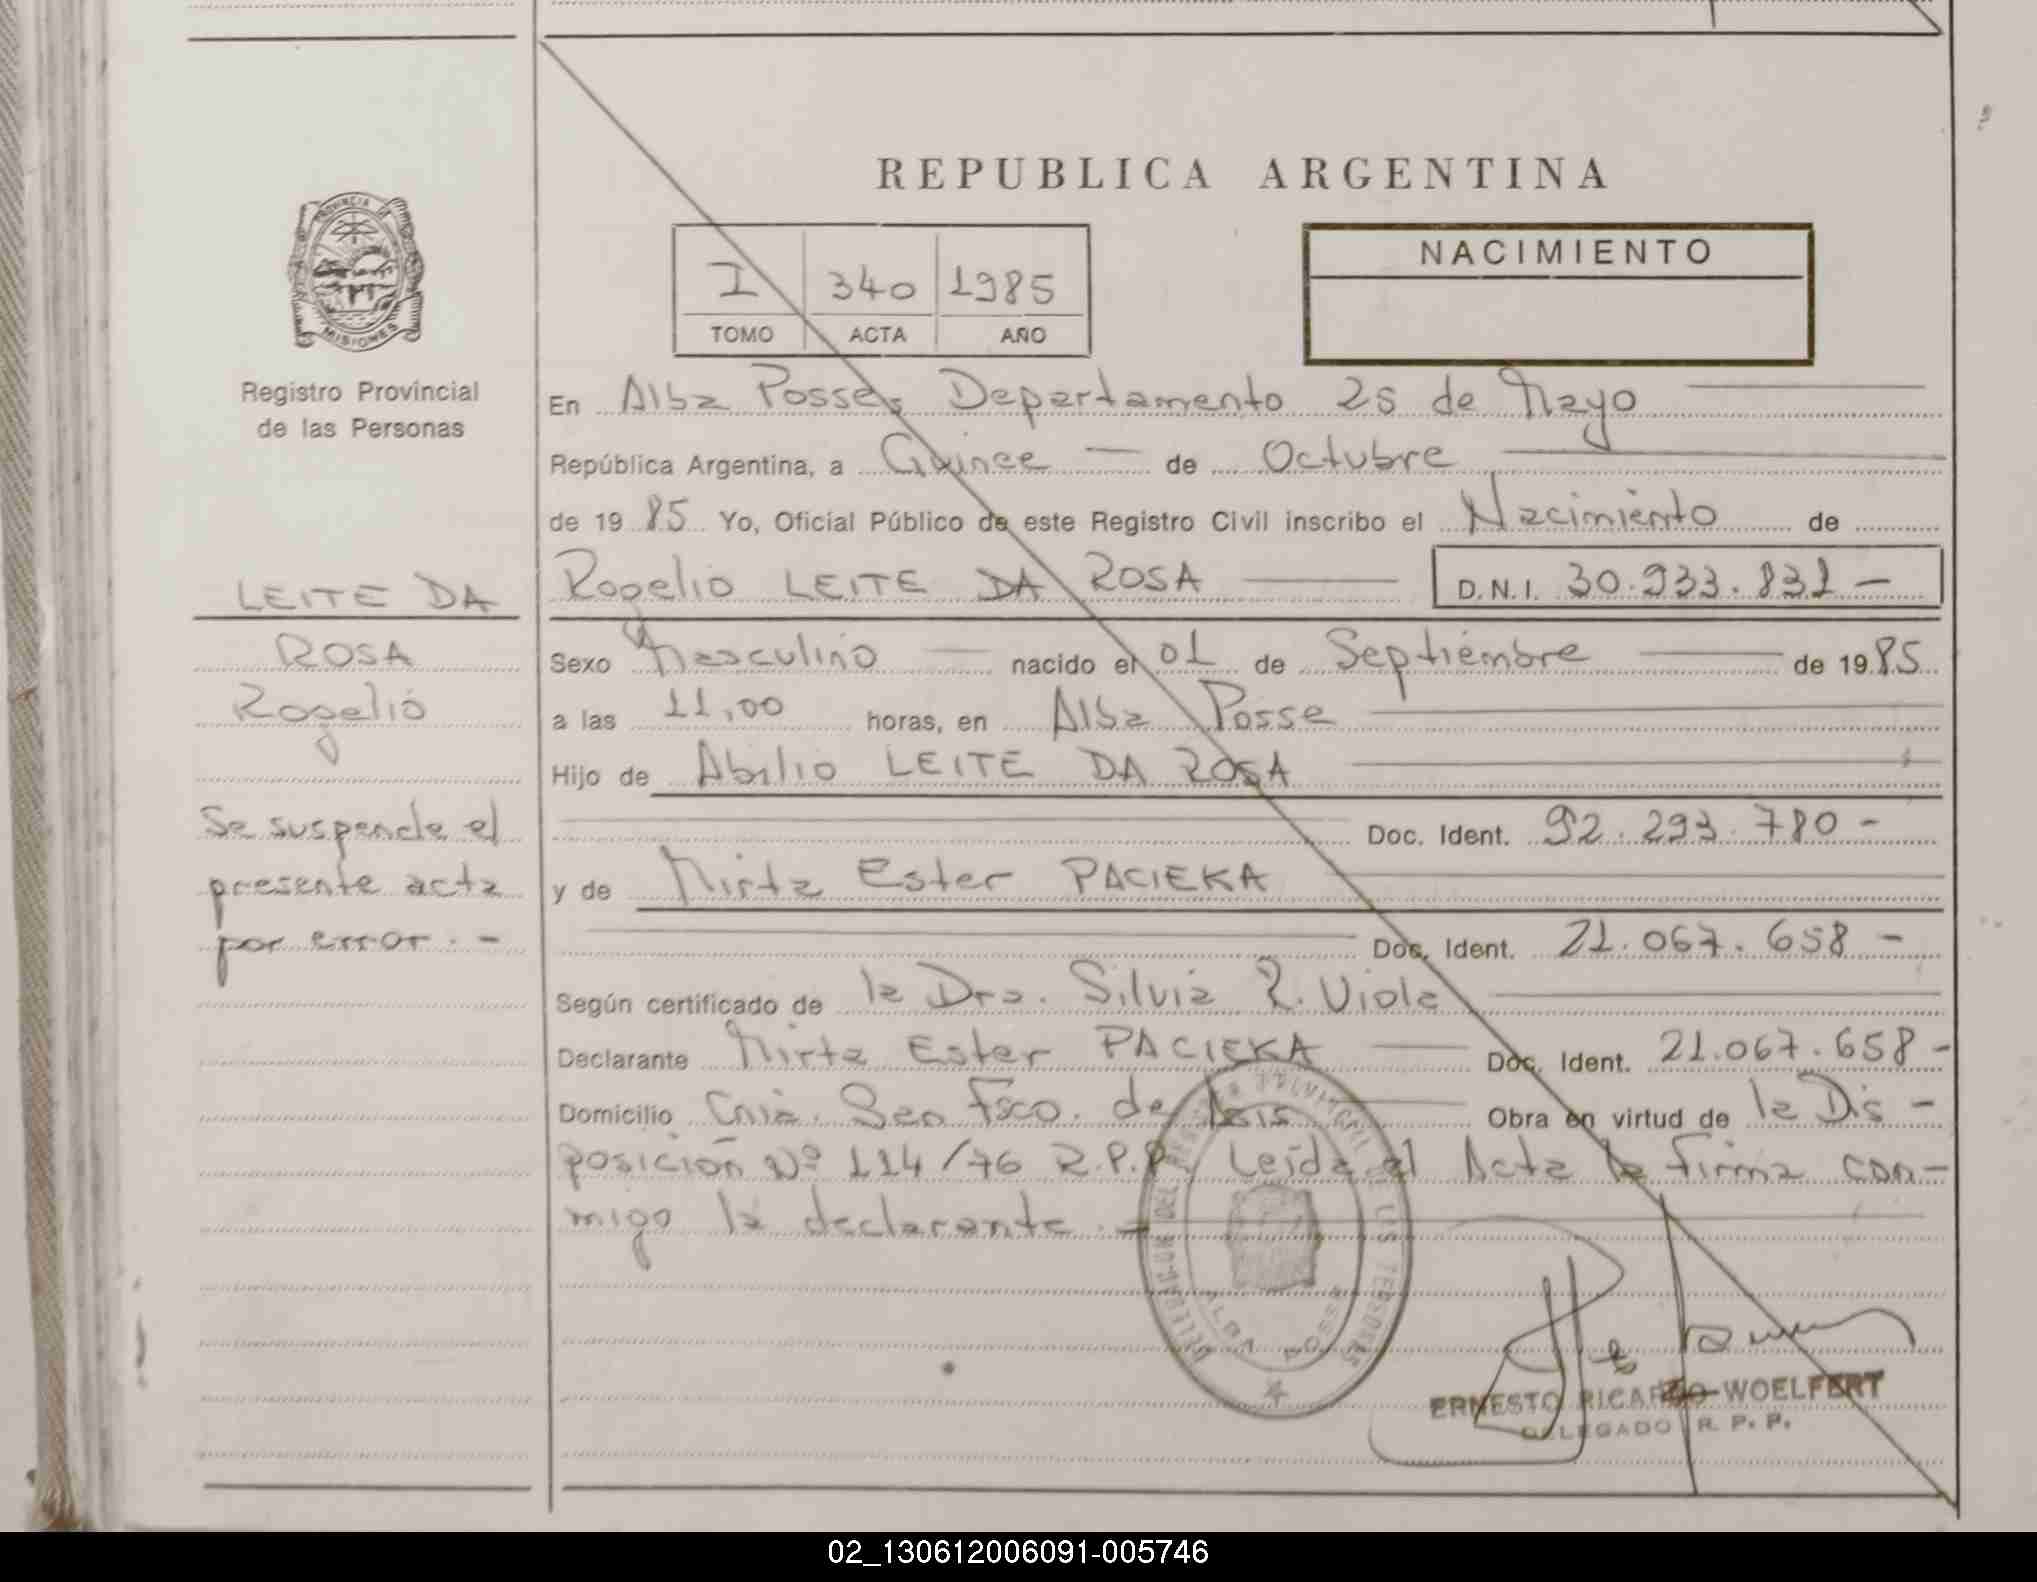 REPUBLICA ARGENTINA
PROVINCIA DE
MISIONES
Registro Provincial
de las Personas
I 340 1985
TOMO ACTA AÑO
NACIMIENTO
En Alba Posse, Departamento 25 de Mayo
República Argentina, a Quince de Octubre
de 19 85 Yo, Oficial Público de este Registro Civil inscribo el Nacimiento de
Rogelio LEITE DA ROSA D.N.I. 30.933.831 -
LEITE DA
ROSA
Rogelio
Sexo Masculino nacido el 01 de Septiembre de 19 85
a las 11,00 horas, en Alba Posse
Hijo de Abilio LEITE DA ROSA
Doc. Ident. 92.293.780 -
y de Mirta Ester PACIEKA
Doc. Ident. 21.067.658 -
Se suspende el
presente acta
por error. -
Según certificado de la Dra. Silvia R. Viola
Declarante Mirta Ester PACIEKA Doc. Ident. 21.067.658 -
Domicilio Cnia. San Fsco. de Asis Obra en virtud de la Dis -
posición Nº 114/76 R.P.P. Leida el Acta la firma con-
migo la declarante. -
DELEGACION DEL REGISTRO PROVINCIAL DE LAS PERSONAS
ALBA POSSE
ERNESTO RICARDO WOELFERT
DELEGADO R. P. P.
02_130612006091-005746